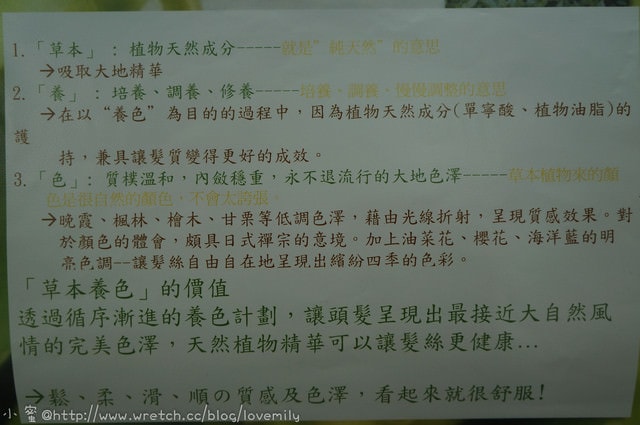 1.「草本」: 植物天然成分-----就是"純天然"的意思
→吸取大地精華
2.「養」: 培養、調養、修養-----培養、調養、慢慢調整的意思
→在以“養色”為目的的過程中，因為植物天然成分(單寧酸、植物油脂)的護
持，兼具讓髮質變得更好的成效。
3.「色」: 質樸溫和，內斂穩重，永不退流行的大地色澤-----草本植物來的顏
色是很自然的顏色，不會太誇張，
→晚霞、楓林、檜木、甘栗等低調色澤，藉由光線折射，呈現質感效果。對
於顏色的體會，頗具日式禪宗的意境。加上油菜花、櫻花、海洋藍的明
亮色調--讓髮絲自由自在地呈現出繽紛四季的色彩。
「草本養色」的價值
透過循序漸進的養色計劃，讓頭髮呈現出最接近大自然風
情的完美色澤，天然植物精華可以讓髮絲更健康...
→鬆、柔、滑、順の質感及色澤，看起來就很舒服!
小蜜@http://www.wretch.cc/blog/lovemily